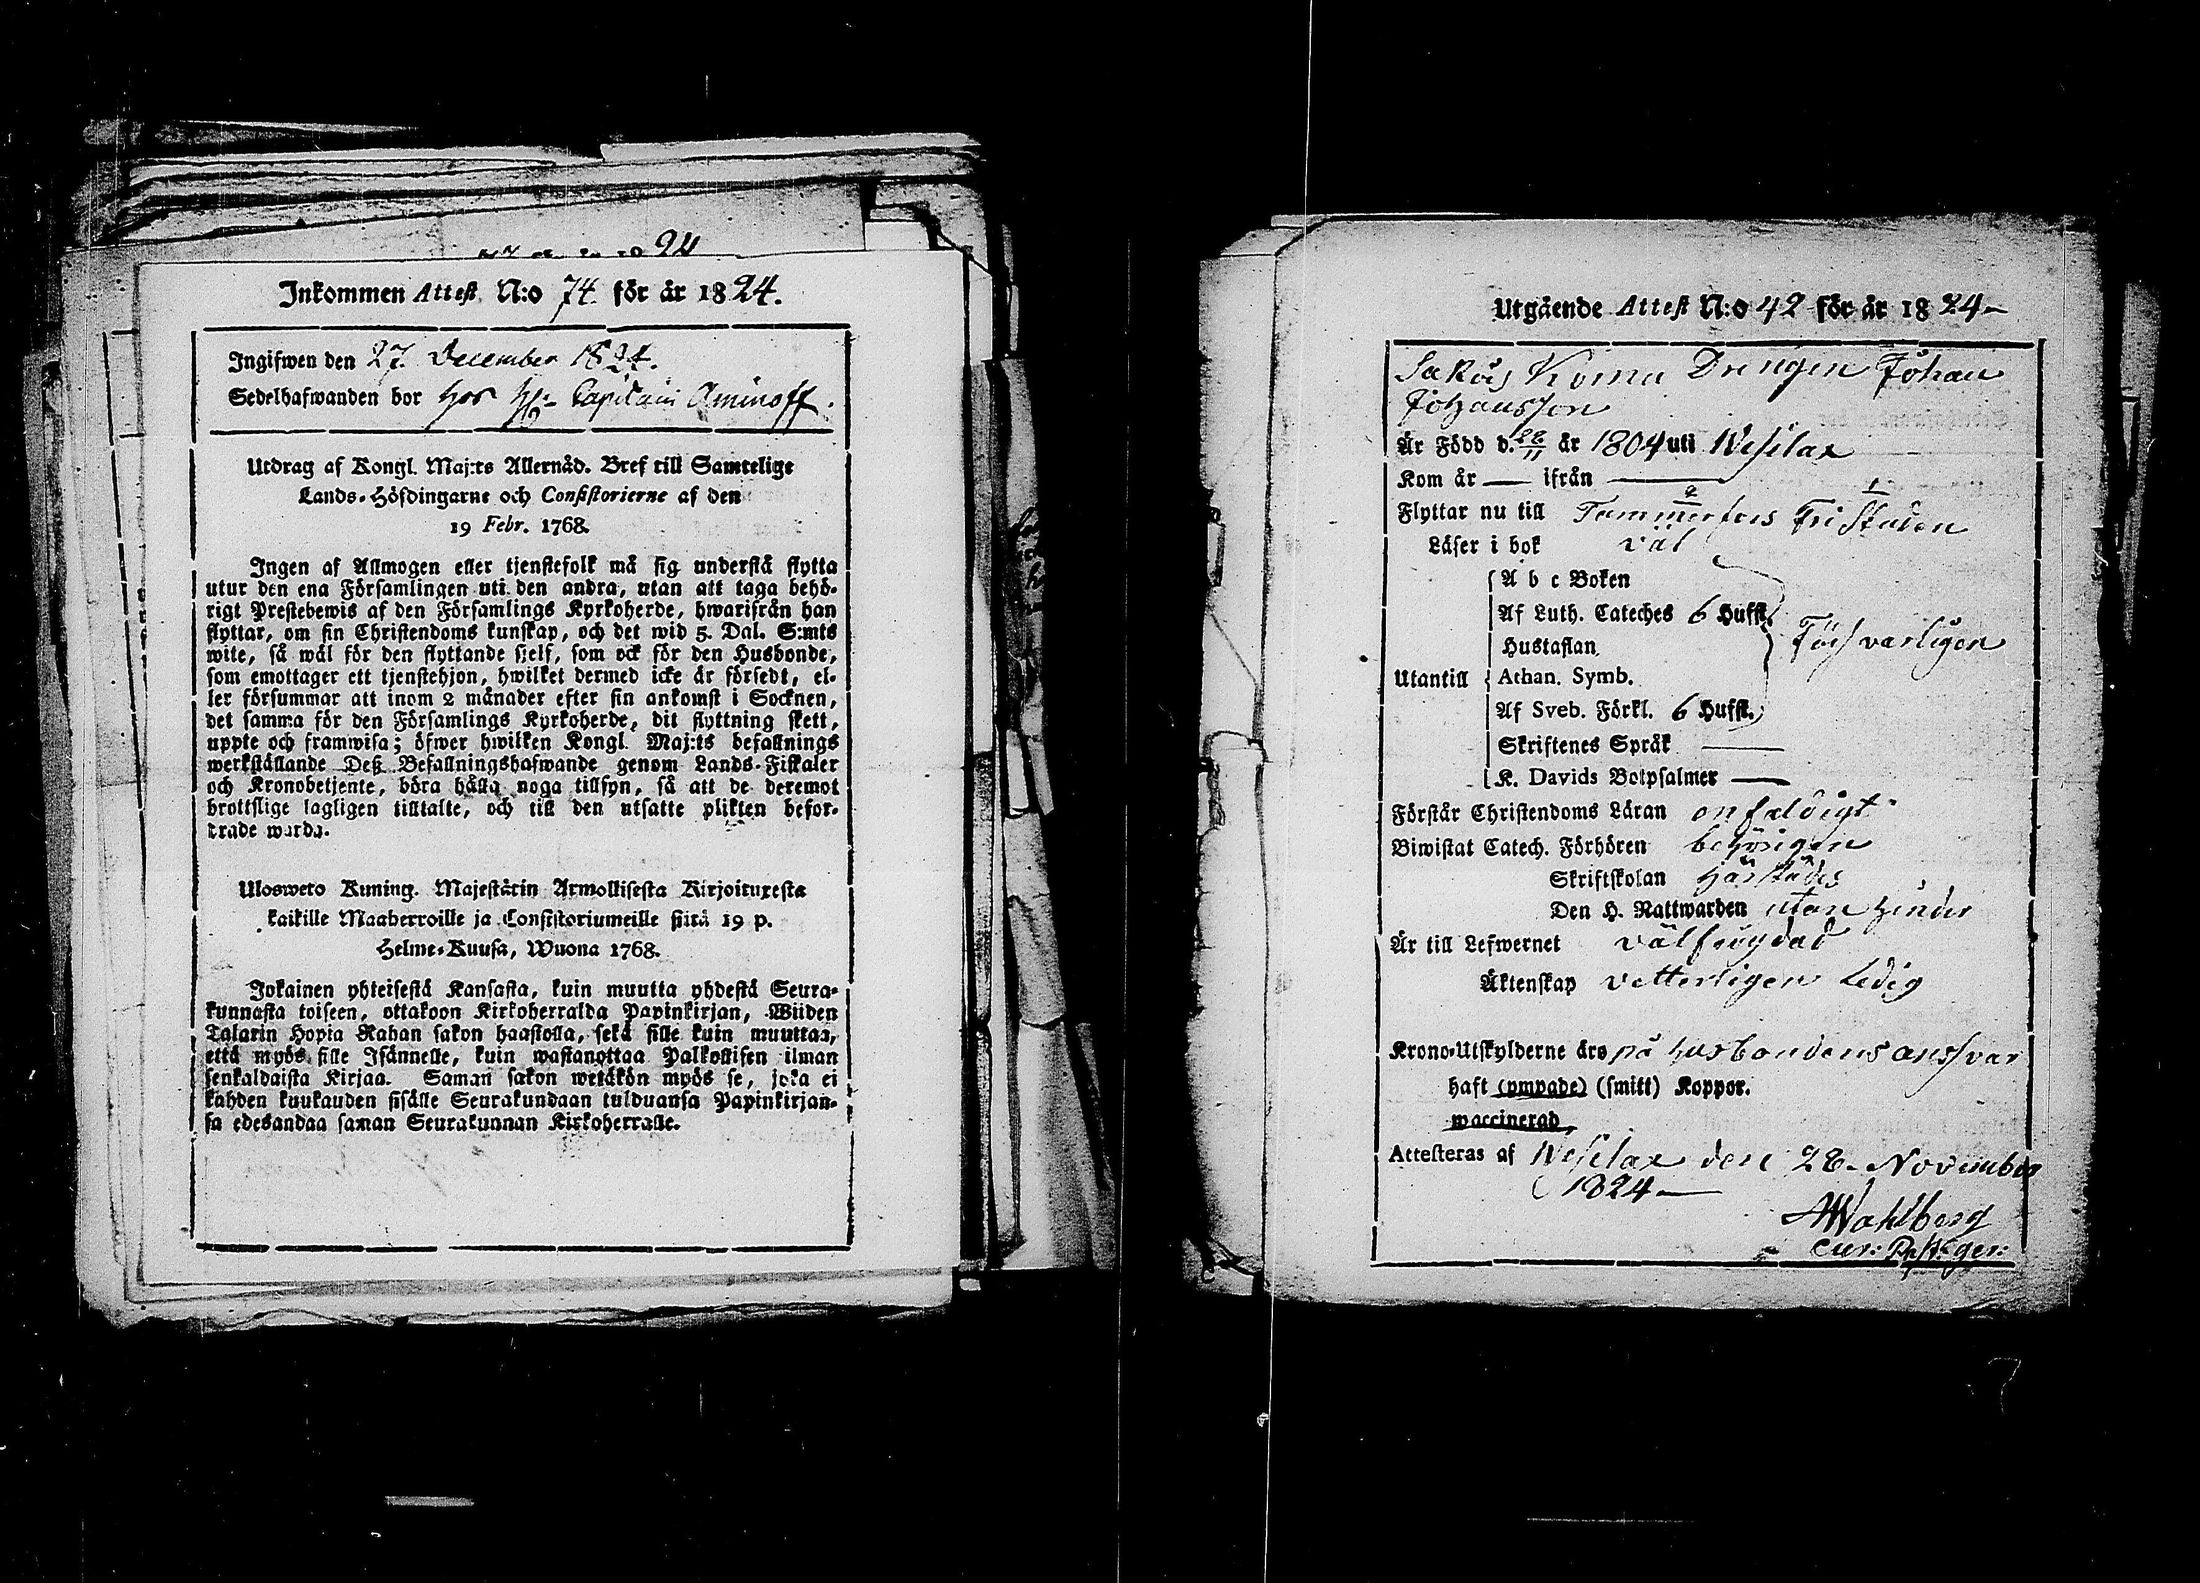 Inkommen Attest N:o 74 för år 1824.
Ingifwen den 27. December 1824.
Sedelhafwanden bor hos Hr Capitain Aminoff.
Utdrag af Kongl. Maj:ts Allernåd. Bref till Samtelige
Lands-Höfdingarne och Consistorierne af den
19 Febr. 1768.
Ingen af Allmogen eller tjenstefolk må sig understå flytta
utur den ena Församlingen uti den andra, utan att taga behö-
rigt Prestebewis af den Församlings Kyrkoherde, hwarifrån han
flyttar, om sin Christendoms kunskap, och det wid 5. Dal. S:mts
wite, så wäl för den flyttande sjelf, som ock för den Husbonde,
som emottager ett tjenstehjon, hwilket dermed icke är försedt, el-
ler försummar att inom 2 månader efter sin ankomst i Socknen,
det samma för den Församlings Kyrkoherde, dit flyttning skett,
uppte och framwisa; öfwer hwilken Kongl. Maj:ts befallnings
werkställande Deß Befallningshafwande genom Lands-Fiskaler
och Kronobetjente, böra hålla noga tillsyn, så att de deremot
brottslige lagligen tilltalte, och till den utsatte plikten befor-
drade warda.
Ulosweto Kuning. Majestätin Armollisesta Kirjoituxesta
kaikille Maaherroille ja Consistoriumeille siitä 19 p.
Helme-Kuusa, Wuona 1768.
Jokainen yhteisestä Kansasta, kuin muutta yhdestä Seura-
kunnasta toiseen, ottakoon Kirkoherralda Papinkirjan, Wiiden
Talarin Hopia Rahan sakon haastolla, sekä sille kuin muuttaa,
että myös sille Isännelle, kuin wastanottaa Palkollisen ilman
senkaldaista Kirjaa. Saman sakon wetäkön myös se, joka ei
kahden kuukauden sisälle Seurakundaan tulduansa Papinkirjan-
sa edesandaa saman Seurakunnan Kirkoherralle.
Utgående Attest N:o 42 för år 1824
Sakois Koma Drengen Johan
Johansson
Är Född d. 28/11 år 1804 uti Wesilax
Kom år — ifrån —
Flyttar nu till Tammerfors Fri Staden
Läser i bok väl
A b c Boken
Af Luth. Cateches 6 Hufst.
Hustaflan
Utantill Athan. Symb. Försvarligen
Af Sveb. Förkl. 6 Hufst.
Skriftenes Språk —
K. Davids Botpsalmer —
Förstår Christendoms Läran enfaldigt
Biwistat Catech. Förhören behörigen
Skriftskolan härstädes
Den H. Nattwarden utan hinder
Är till Lefwernet välfrägdad
Äktenskap vetterligen Ledig
Krono-Utskylderne äro på husbondens ansvar
haft (ympade) (smitt) Koppor.
waccinerad
Attesteras af Wesilax den 28. November
1824 —
A Wahlberg